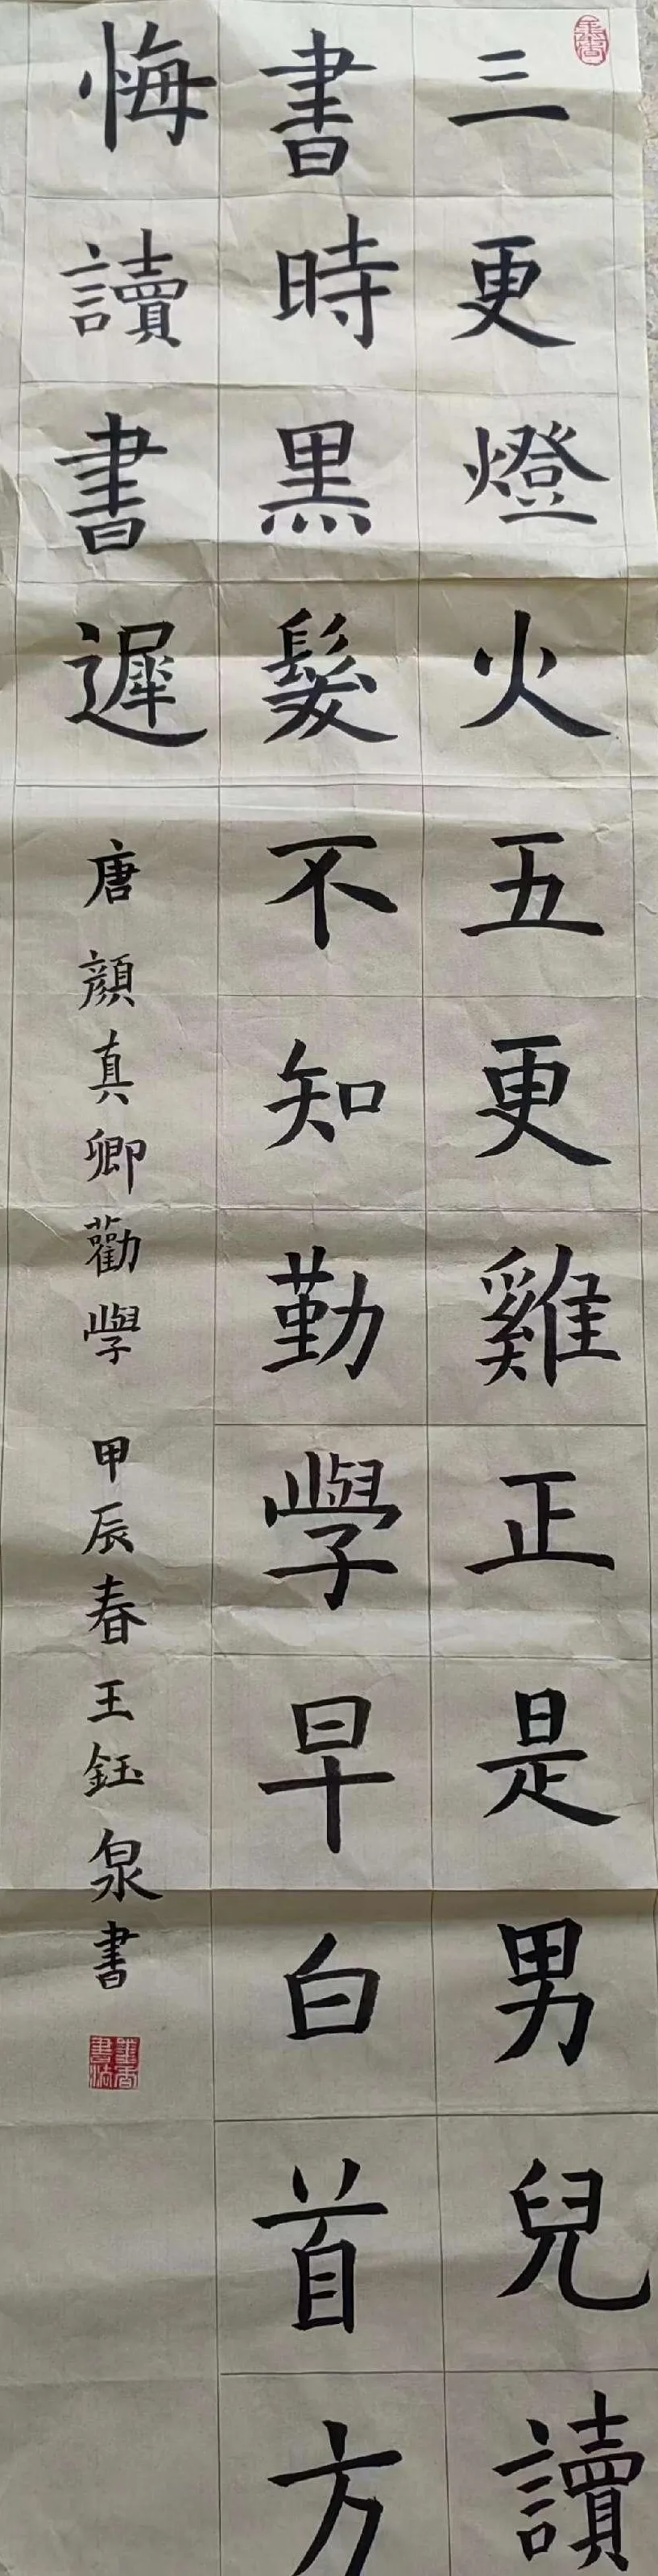 三更燈火五更雞正是男兒讀
書時黑髮不知勤學早白首方
悔讀書遲
唐顏真卿勸學 甲辰春王鈺泉書